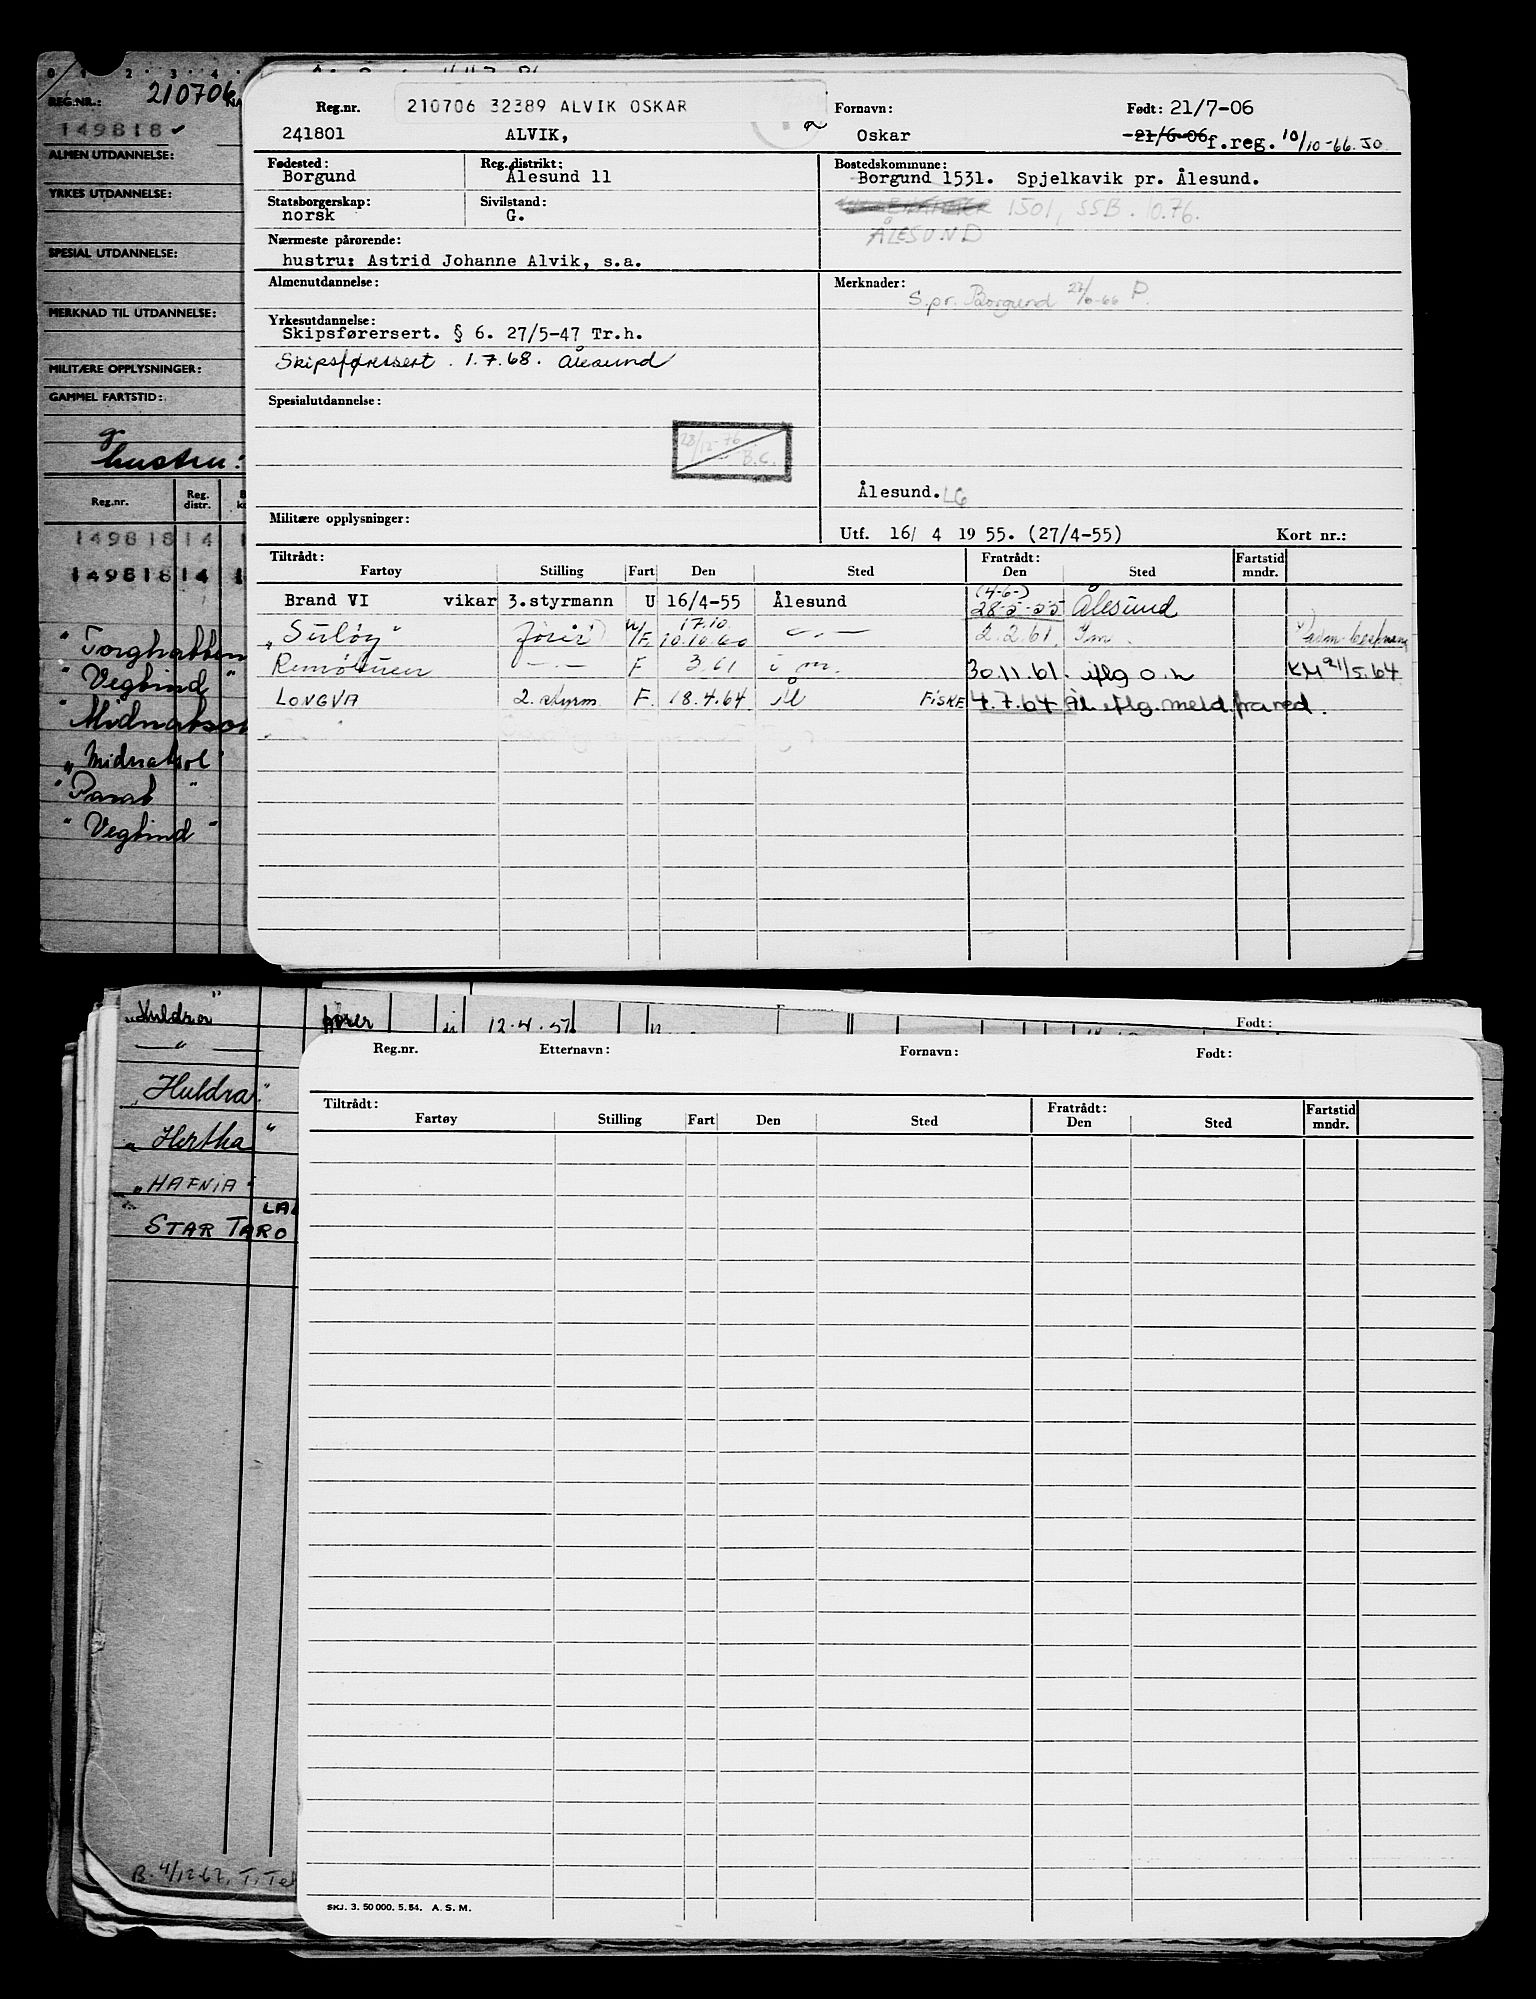 0 1 2 3 4
REG.NR.: 210706 NA
149818 ✓
ALMEN UTDANNELSE:
YRKES UTDANNELSE:
SPESIAL UTDANNELSE:
MERKNAD TIL UTDANNELSE:
MILITÆRE OPPLYSNINGER:
GAMMEL FARTSTID:
g
hustru:
Reg.nr. Reg. distr.
149818 14 1
149818 14 1
"Torghatten
"Vegtind"
"Midnatsol
"Midnatsol"
"Parat "
"Vegtind"
Reg.nr. 210706 32389 ALVIK OSKAR Fornavn: Født: 21/7-06
241801 ALVIK, Oskar 21/6-06 f.reg. 10/10-66. JO
Fødested: Reg.distrikt: Bostedskommune:
Borgund Ålesund 11 Borgund 1531. Spjelkavik pr. Ålesund.
Statsborgerskap: Sivilstand:
norsk G. 1501, SSB. 10.76.
Nærmeste pårørende: ÅLESUND
hustru: Astrid Johanne Alvik, s.a.
Almenutdannelse: Merknader:
S.pr. Borgund 27/6-66 P.
Yrkesutdannelse:
Skipsførersert. § 6. 27/5-47 Tr.h.
Skipsførersert. 1.7.68. Ålesund
Spesialutdannelse:
28/12-76 B.C.
Ålesund. LG
Militære opplysninger:
Utf. 16/ 4 19 55. (27/4-55) Kort nr.:
Tiltrådt: Fratrådt: Fartstid
Fartøy Stilling Fart Den Sted Den Sted mndr.
(4-6-)
Brand VI vikar 3.styrmann U 16/4-55 Ålesund 28-5-55 Ålesund
17.10.
"Suløy" fører N/F. 10.10.60 — " — 2.2.61. I m.
Remøtuen — " — F 3.61 i m. 30.11.61. iflg o.n KM 21/5.64
LONGVA 2. styrm. F. 18.4.64 Ål FISKE 4.7.64 Ål. iflg. meld. fra red.
"Huldra" fører 12.4.57
— " —
"Huldra"
"Hertha"
"HAFNIA"
STAR TARO
Født:
Reg.nr. Etternavn: Fornavn: Født:
Tiltrådt: Fratrådt: Fartstid
Fartøy Stilling Fart Den Sted Den Sted mndr.
B. 4/12-62, T. Tel
SKJ. 3. 50 000. 5. 54. A. S. M.